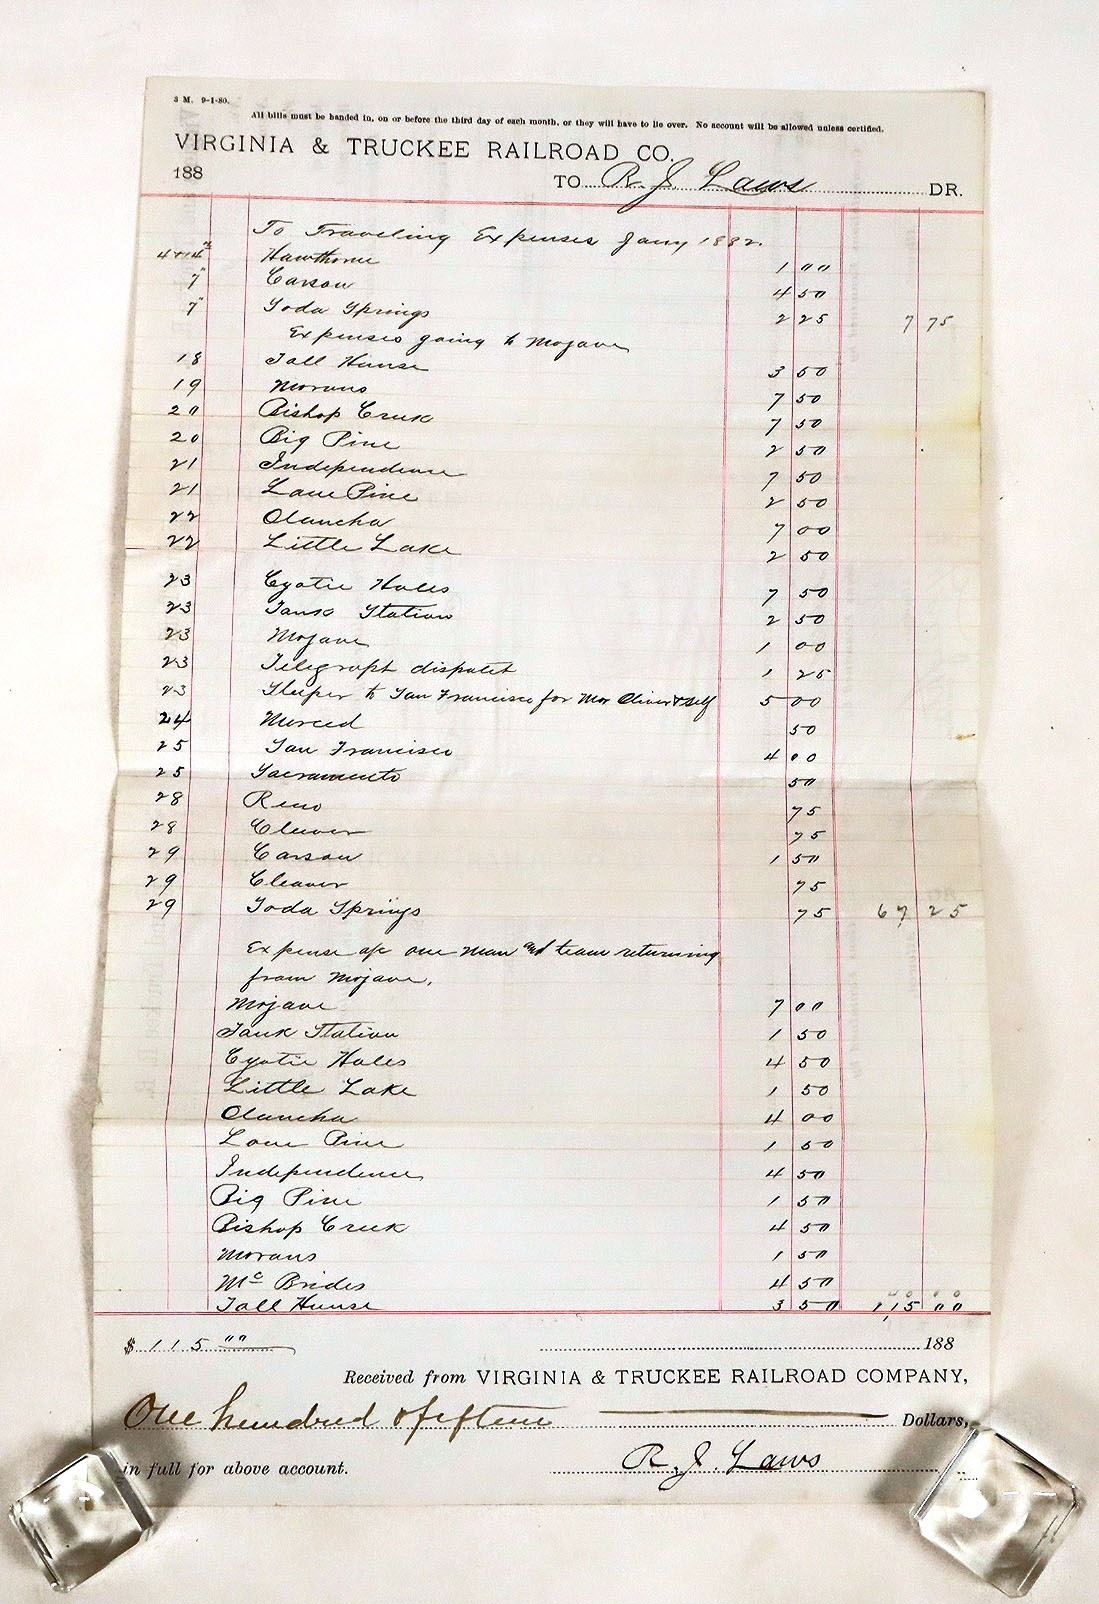 3 M. 9-1-80.
All bills must be handed in, on or before the third day of each month, or they will have to lie over. No account will be allowed unless certified.
VIRGINIA & TRUCKEE RAILROAD CO.
188
TO R. J. Laws DR.
To Traveling Expenses Jany 1882.
4 & 14" Hawthorne 1 00
7" Carson 4 50
7" Soda Springs 2 25 7 75
Expenses going to Mojave
18 Toll House 3 50
19 Morans 7 50
20 Bishop Creek 7 50
20 Big Pine 2 50
21 Independence 7 50
21 Lone Pine 2 50
22 Olancha 7 00
22 Little Lake 2 50
23 Cyotie Holes 7 50
23 Tank Station 2 50
23 Mojave 1 00
23 Telegraph dispatch 1 25
23 Sleeper to San Francisco for Mr Oliver & Self 5 00
24 Merced 50
25 San Francisco 4 00
25 Sacramento 50
28 Reno 75
28 Cleaver 75
29 Carson 1 50
29 Cleaver 75
29 Soda Springs 75 67 25
Expense of one man and team returning
from Mojave.
Mojave 7 00
Tank Station 1 50
Cyotie Holes 4 50
Little Lake 1 50
Olancha 4 00
Lone Pine 1 50
Independence 4 50
Big Pine 1 50
Bishop Creek 4 50
Morans 1 50
Mc Brides 4 50
40 00
Toll House 3 50 115 00
$ 115 00
188
Received from VIRGINIA & TRUCKEE RAILROAD COMPANY,
One hundred & fifteen Dollars,
in full for above account. R. J. Laws